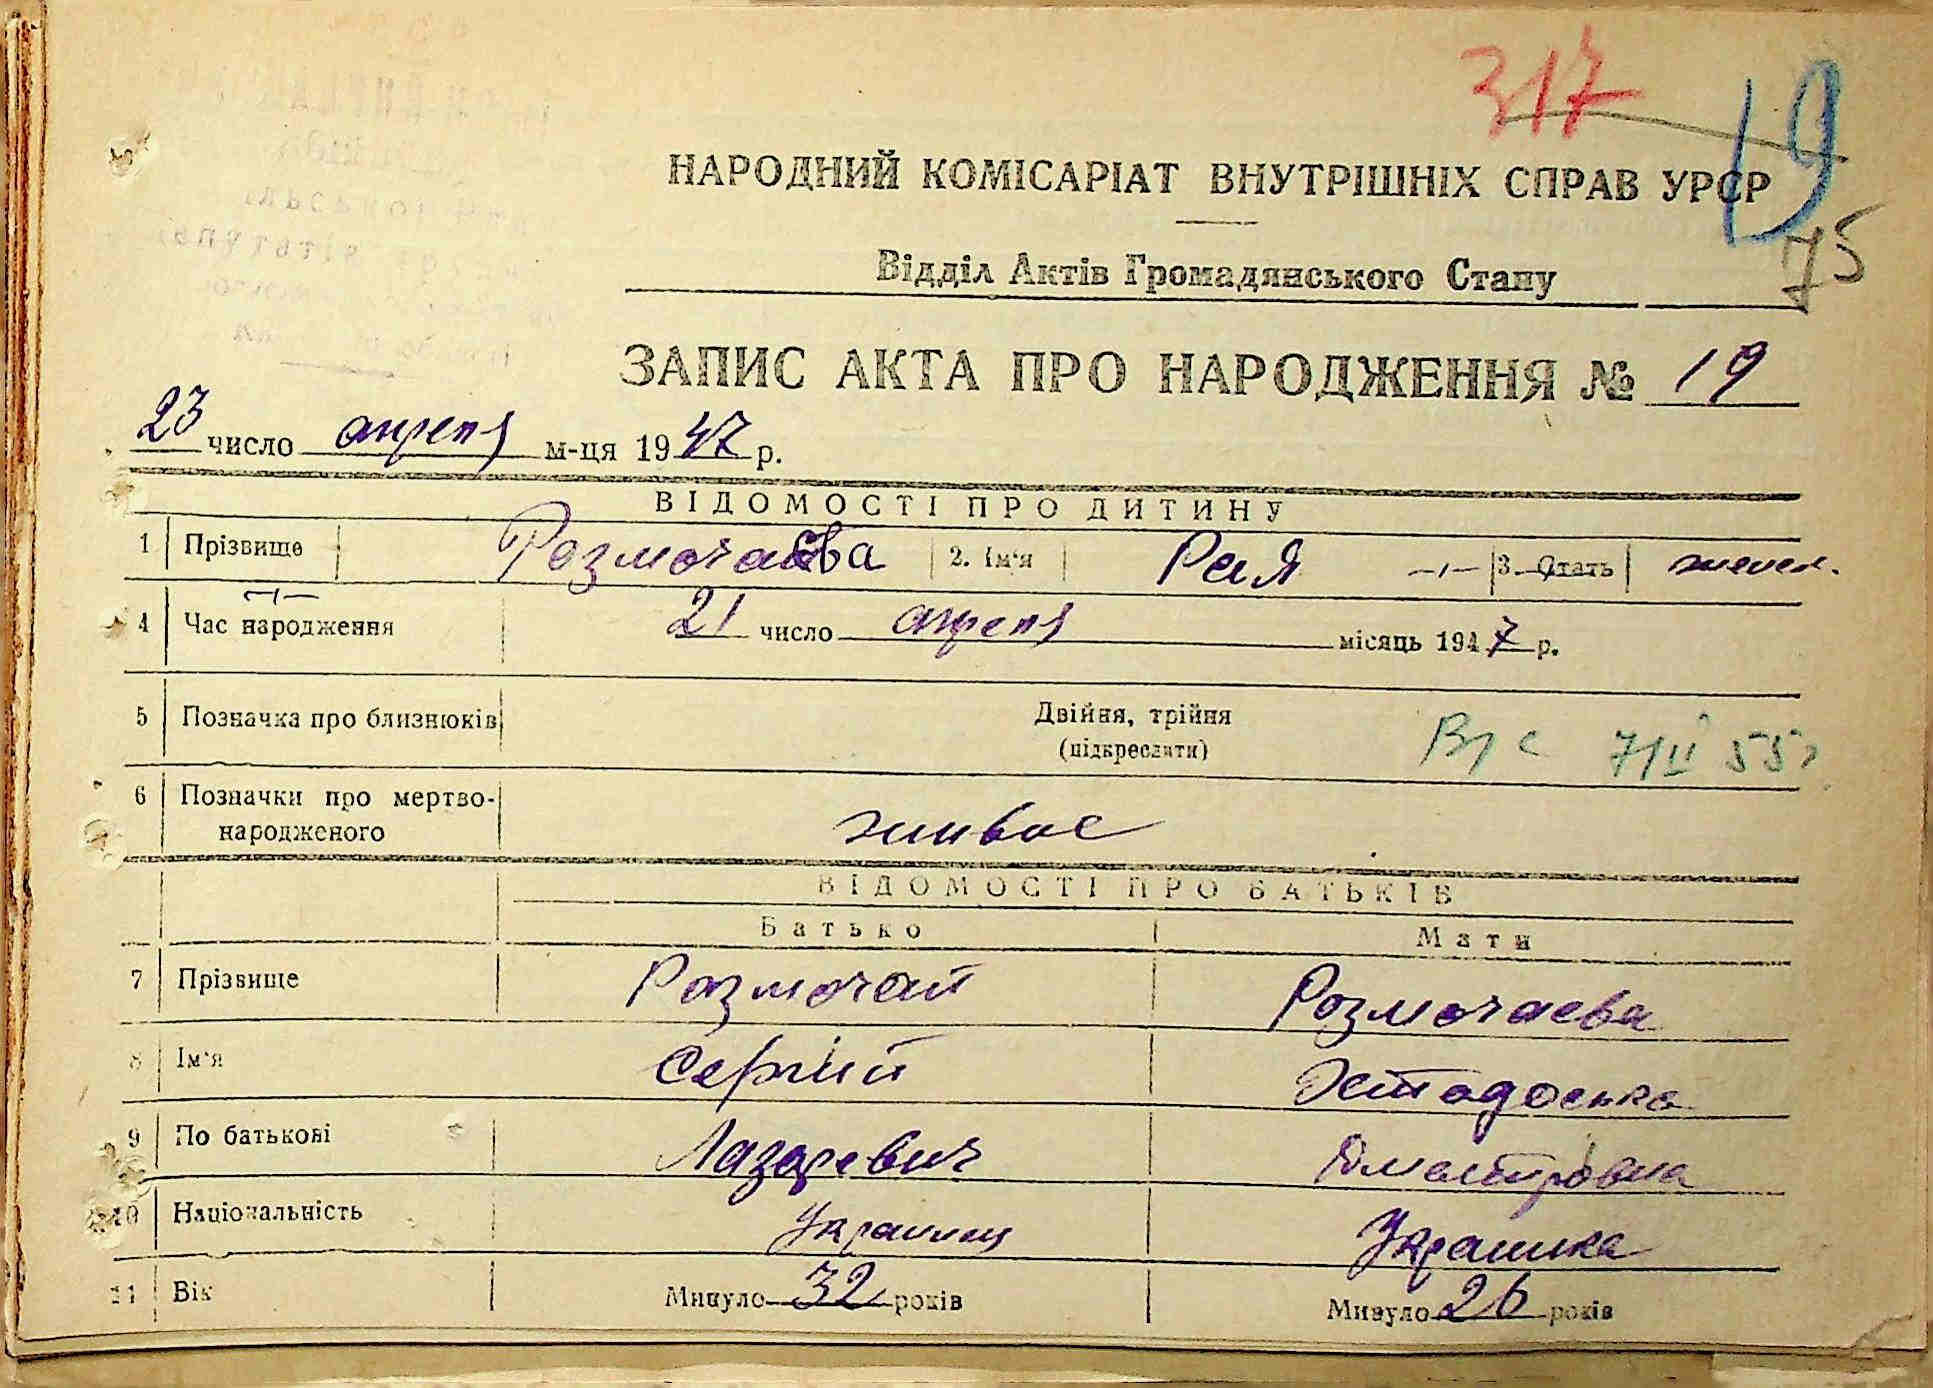 317
19
НАРОДНИЙ КОМІСАРІАТ ВНУТРІШНІХ СПРАВ УРСР
75
Відділ Актів Громадянського Стану
ЗАПИС АКТА ПРО НАРОДЖЕННЯ № 19
23 число апреля м-ця 1947 р.
ВІДОМОСТІ ПРО ДИТИНУ
1 Прізвище Розмочаева 2. Ім'я Рая 3. Стать женск.
4 Час народження 21 число апреля місяць 1947 р.
5 Позначка про близнюків Двійня, трійня
(підкреслити) 7/II 55г
6 Позначки про мертво-
народженого живое
ВІДОМОСТІ ПРО БАТЬКІВ
Батько Мати
7 Прізвище Розмочай Розмочаева
8 Ім'я Сергій
9 По батькові Лазаревич Дмитровна
10 Національність Украинец Украинка
11 Вік Минуло 32 років Минуло 26 років